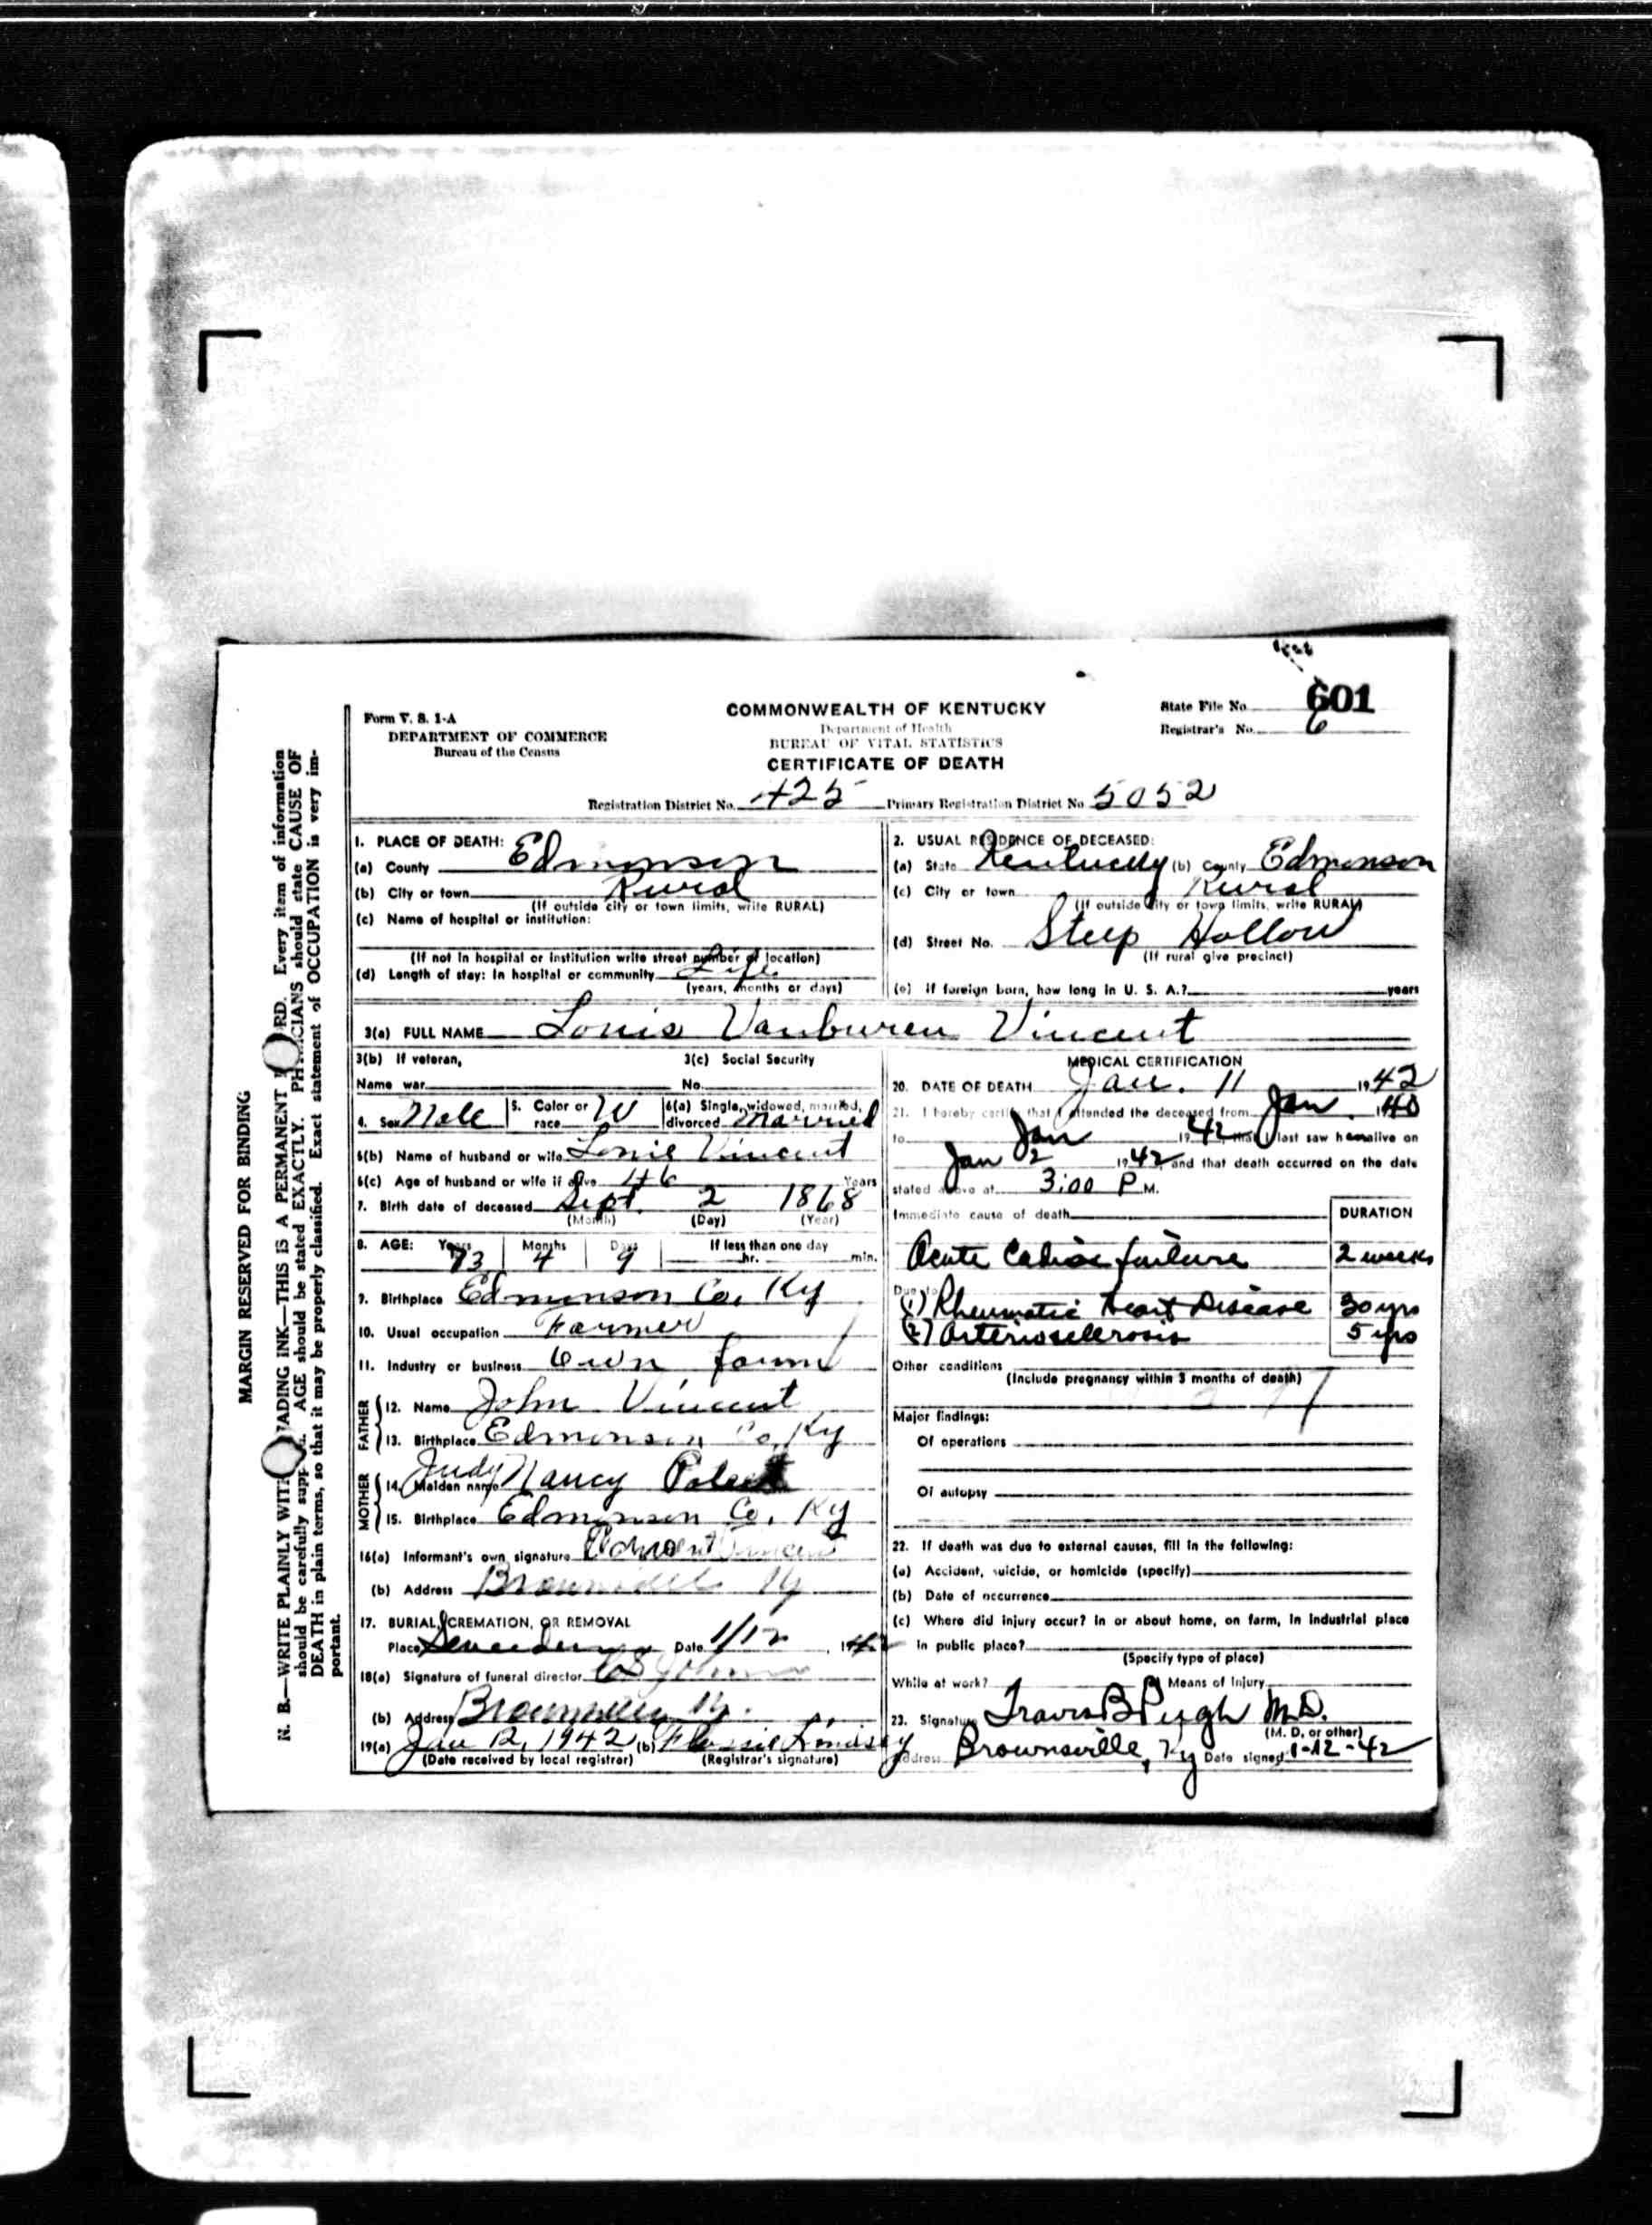 MARGIN RESERVED FOR BINDING
N. B.—WRITE PLAINLY WITH FADING INK—THIS IS A PERMANENT RD. Every item of information
should be carefully supp AGE should be stated EXACTLY. PHYSICIANS should state CAUSE OF
DEATH in plain terms, so that it may be properly classified. Exact statement of OCCUPATION is very im-
portant.
Form V. S. 1-A
DEPARTMENT OF COMMERCE
Bureau of the Census
COMMONWEALTH OF KENTUCKY
Department of Health
BUREAU OF VITAL STATISTICS
CERTIFICATE OF DEATH
State File No. 601
Registrar's No. 6
Registration District No. 425 Primary Registration District No. 5052
1. PLACE OF DEATH:
(a) County Edmonson
(b) City or town Rural
(If outside city or town limits, write RURAL)
(c) Name of hospital or institution:
(If not in hospital or institution write street number or location)
(d) Length of stay: In hospital or community Life
(years, months or days)
2. USUAL RESIDENCE OF DECEASED:
(a) State Kentucky (b) County Edmonson
(c) City or town Rural
(If outside city or town limits, write RURAL)
(d) Street No. Steep Hollow
(If rural give precinct)
(e) If foreign born, how long in U. S. A.? years
3(a) FULL NAME Louis Vanburen Vincent
3(b) If veteran, 3(c) Social Security
Name war No.
4. Sex Male 5. Color or race W 6(a) Single, widowed, married, divorced Married
6(b) Name of husband or wife Lonie Vincent
6(c) Age of husband or wife if alive 46 Years
7. Birth date of deceased Sept. 2 1868
(Month) (Day) (Year)
8. AGE: Years Months Days If less than one day
73 4 9 hr. min.
9. Birthplace Edmonson Co, Ky
10. Usual occupation Farmer
11. Industry or business Own farm
FATHER
12. Name John Vincent
13. Birthplace Edmonson Co, Ky
MOTHER
14. Maiden name Judy Nancy
15. Birthplace Edmonson Co. Ky
16(a) Informant's own signature Vincent
(b) Address Brownsville Ky
17. BURIAL, CREMATION, OR REMOVAL
Place Date 1/12, 1942
18(a) Signature of funeral director
(b) Address Brownsville Ky.
19(a) Jan 12, 1942 (b) Flossie Lindsey
(Date received by local registrar) (Registrar's signature)
MEDICAL CERTIFICATION
20. DATE OF DEATH Jan. 11 1942
21. I hereby certify that I attended the deceased from Jan. 1940
to Jan 1942 that I last saw him alive on
Jan 2 1942 and that death occurred on the date
stated above at 3:00 P M.
Immediate cause of death DURATION
Acute Cadiac failure 2 weeks
Due to
(1) Rheumatic Heart Disease 30 yrs
(2) Arteriosclerosis 5 yrs
Other conditions
(Include pregnancy within 3 months of death)
Major findings:
Of operations
Of autopsy
22. If death was due to external causes, fill in the following:
(a) Accident, suicide, or homicide (specify)
(b) Date of occurrence
(c) Where did injury occur? In or about home, on farm, in industrial place
in public place?
(Specify type of place)
While at work? Means of Injury
23. Signature Travis B Pugh M.D.
(M. D. or other)
Address Brownsville, Ky Date signed 1-12-42